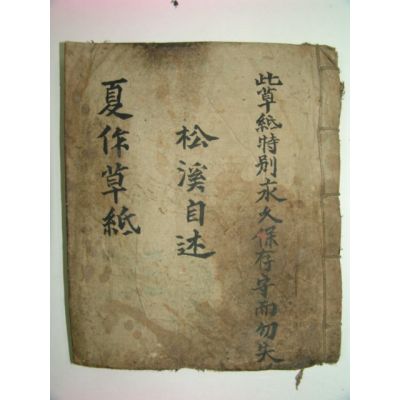 此草紙特別永久保存守而勿失
松溪自述
夏作草紙